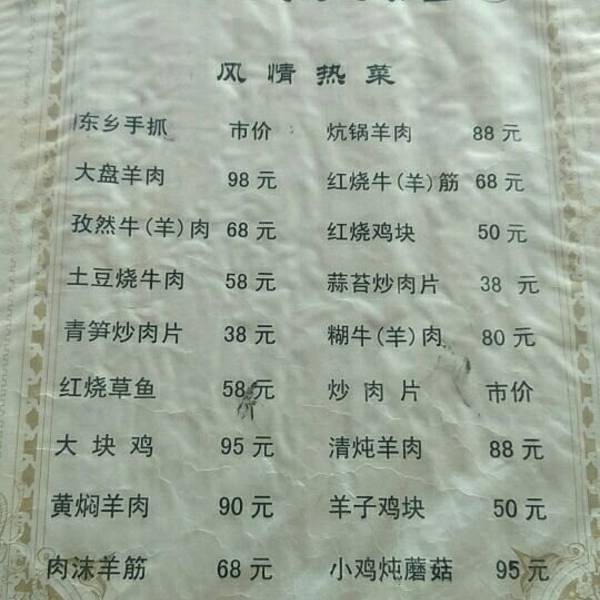 风情热菜
东乡手抓 市价 炕锅羊肉 88元
大盘羊肉 98元 红烧牛(羊)筋 68元
孜然牛(羊)肉 68元 红烧鸡块 50元
土豆烧牛肉 58元 蒜苔炒肉片 38元
青笋炒肉片 38元 糊牛(羊)肉 80元
红烧草鱼 58元 炒肉片 市价
大块鸡 95元 清炖羊肉 88元
黄焖羊肉 90元 羊子鸡块 50元
肉沫羊筋 68元 小鸡炖蘑菇 95元